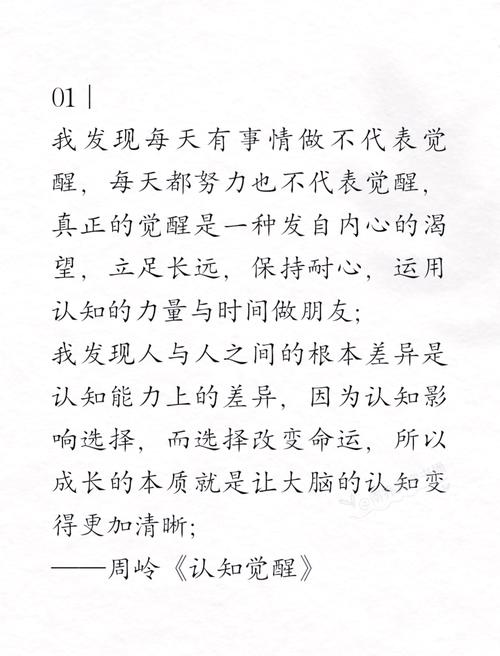 01 |
我发现每天有事情做不代表觉
醒，每天都努力也不代表觉醒，
真正的觉醒是一种发自内心的渴
望，立足长远，保持耐心，运用
认知的力量与时间做朋友；
我发现人与人之间的根本差异是
认知能力上的差异，因为认知影
响选择，而选择改变命运，所以
成长的本质就是让大脑的认知变
得更加清晰；
——周岭《认知觉醒》